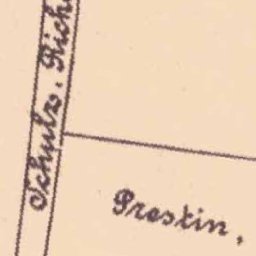 Schulz. Rich
Prestin,